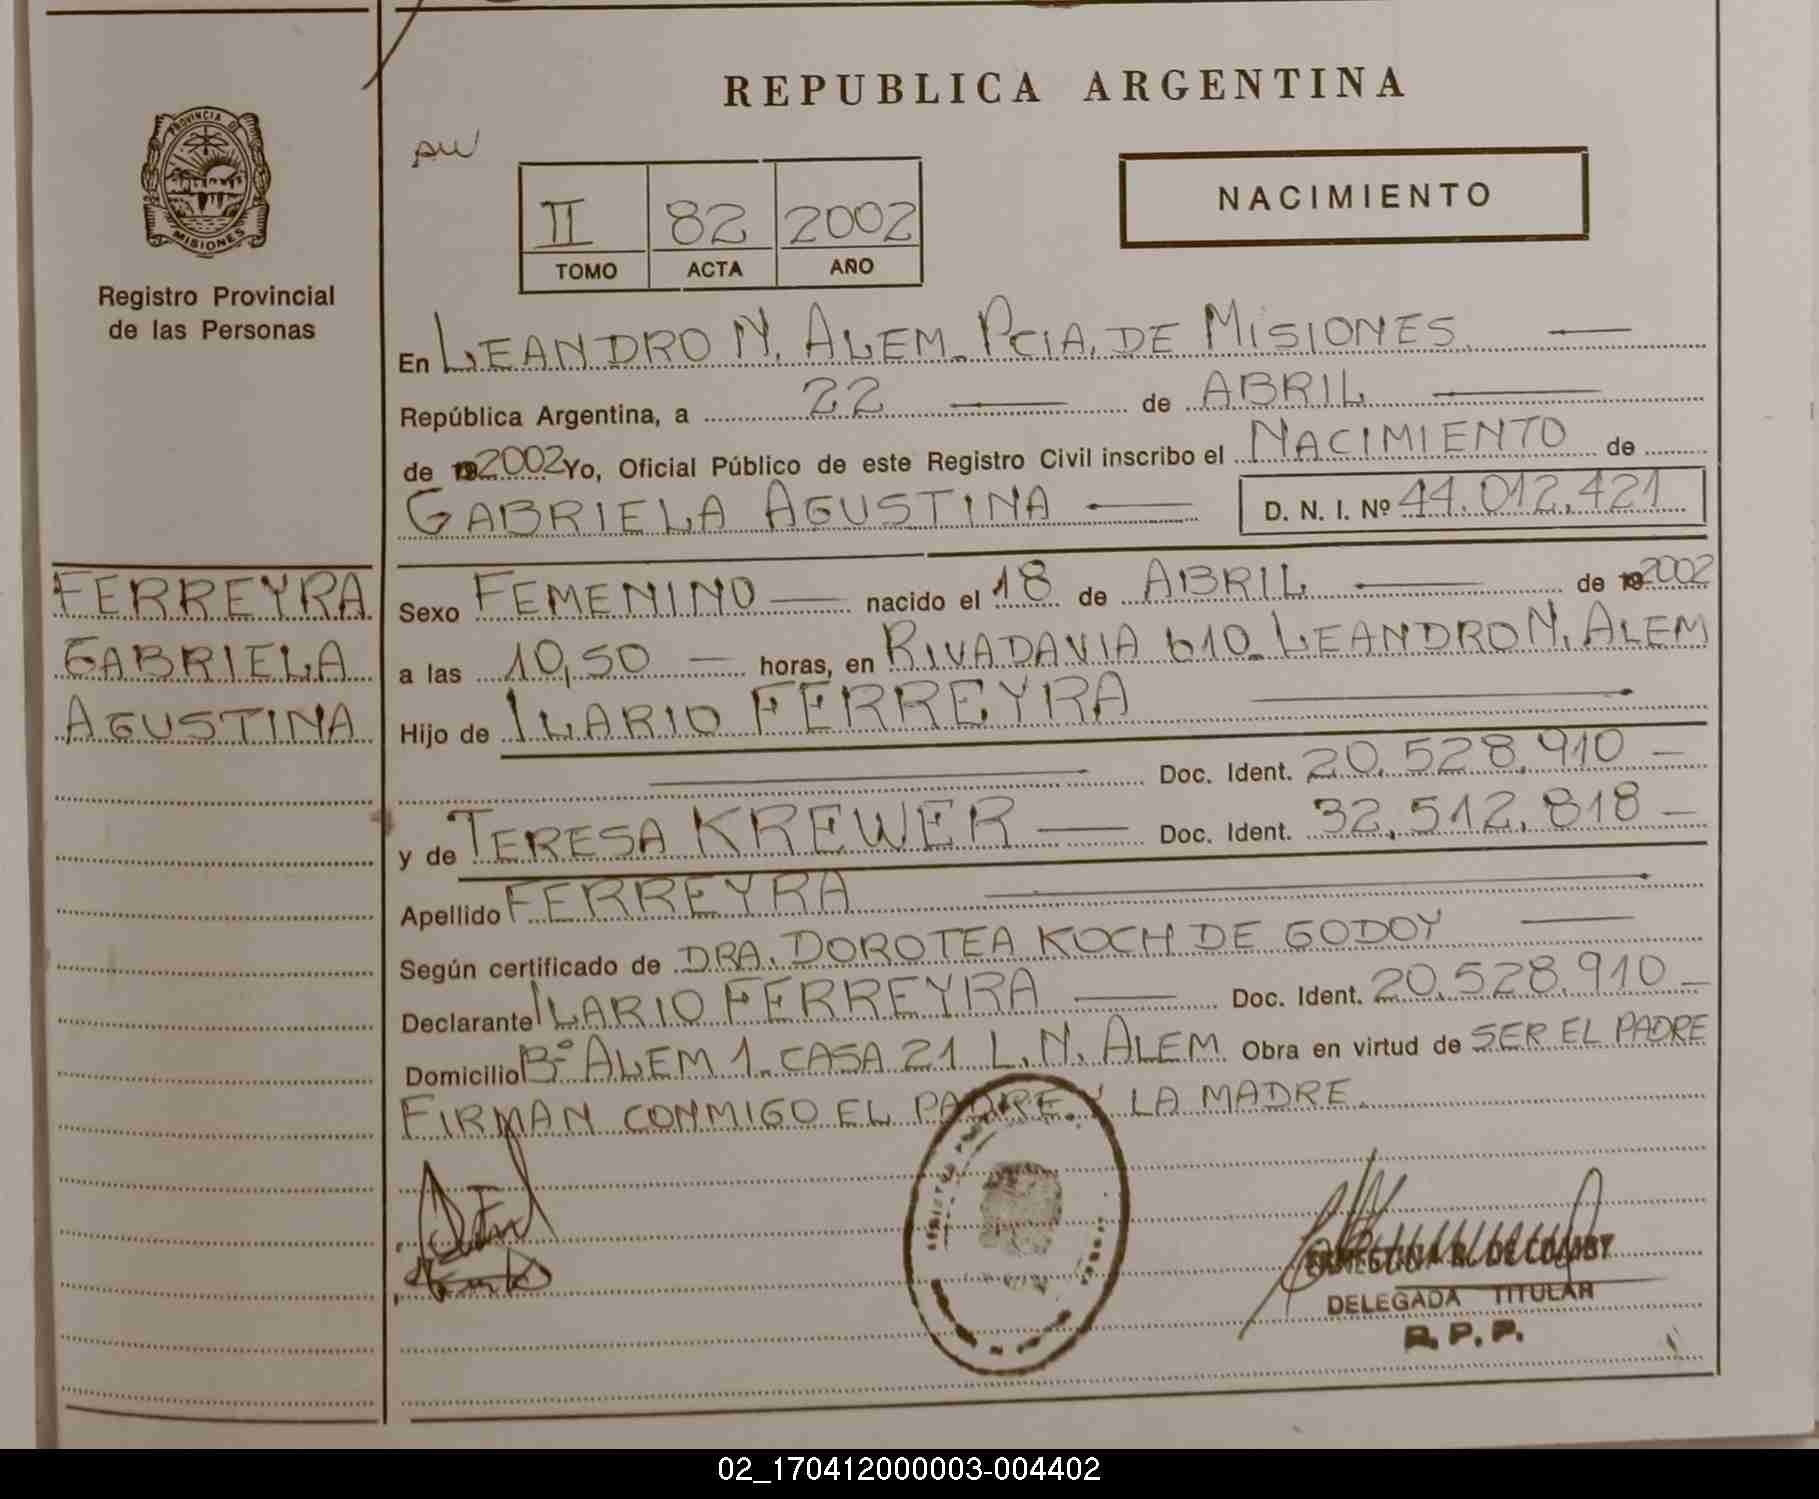 REPUBLICA ARGENTINA
PROVINCIA DE
MISIONES
Registro Provincial
de las Personas
NACIMIENTO
II 82 2002
TOMO ACTA AÑO
En LEANDRO N. ALEM. PCIA. DE MISIONES
República Argentina, a 22 de ABRIL
de 19 2002 Yo, Oficial Público de este Registro Civil inscribo el NACIMIENTO de
GABRIELA AGUSTINA D. N. I. Nº 44.012.421
FERREYRA
GABRIELA
AGUSTINA
Sexo FEMENINO nacido el 18 de ABRIL de 19 2002
a las 10,50 horas, en RIVADAVIA 610. LEANDRO N. ALEM
Hijo de ILARIO FERREYRA
Doc. Ident. 20.528.910
y de TERESA KREWER Doc. Ident. 32.512.818
Apellido FERREYRA
Según certificado de DRA. DOROTEA KOCH DE GODOY
Declarante ILARIO FERREYRA Doc. Ident. 20.528.910
Domicilio Bº ALEM 1. CASA 21 L. N. ALEM Obra en virtud de SER EL PADRE
FIRMAN CONMIGO EL PADRE Y LA MADRE.
DELEGADA TITULAR
R. P. P.
02_170412000003-004402